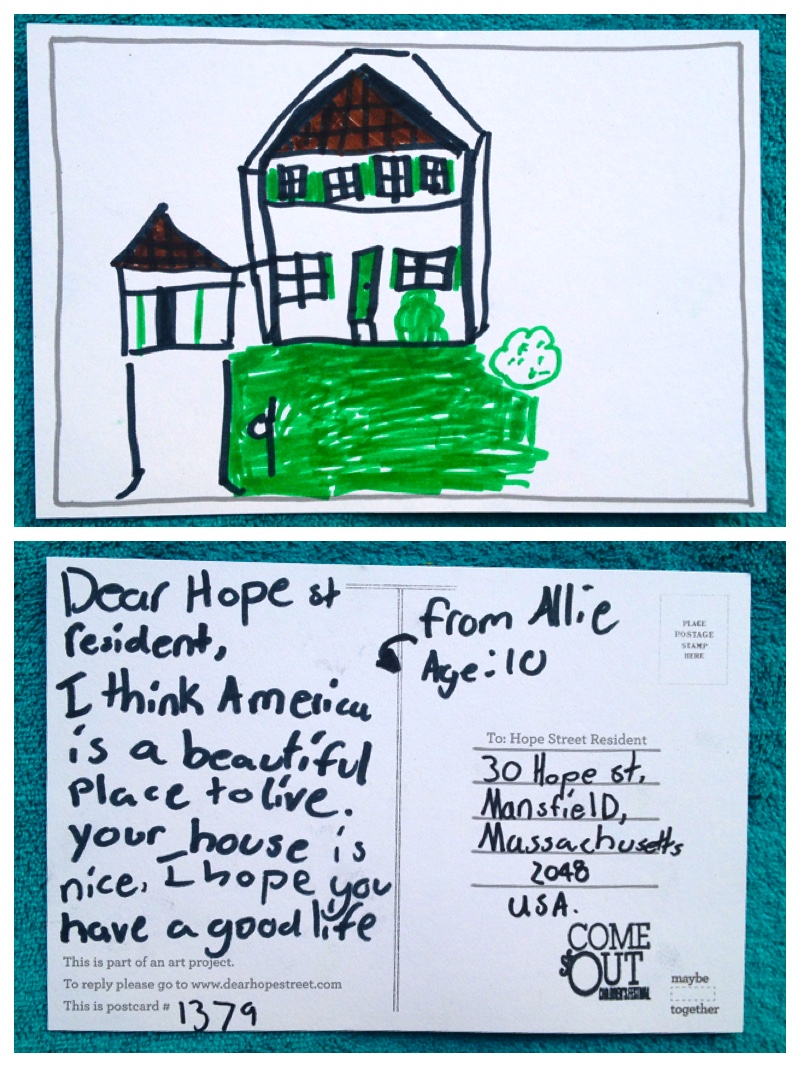 Dear Hope st
resident,
I think America
is a beautiful
place to live.
your house is
nice. I hope you
have a good life
This is part of an art project.
To reply please go to www.dearhopestreet.com
This is postcard # 1379
from Allie
Age: 10
PLACE
POSTAGE
STAMP
HERE
To: Hope Street Resident
30 Hope st,
Mansfield,
Massachusetts
2048
USA.
COME
OUT
CHILDREN'S FESTIVAL
maybe
together